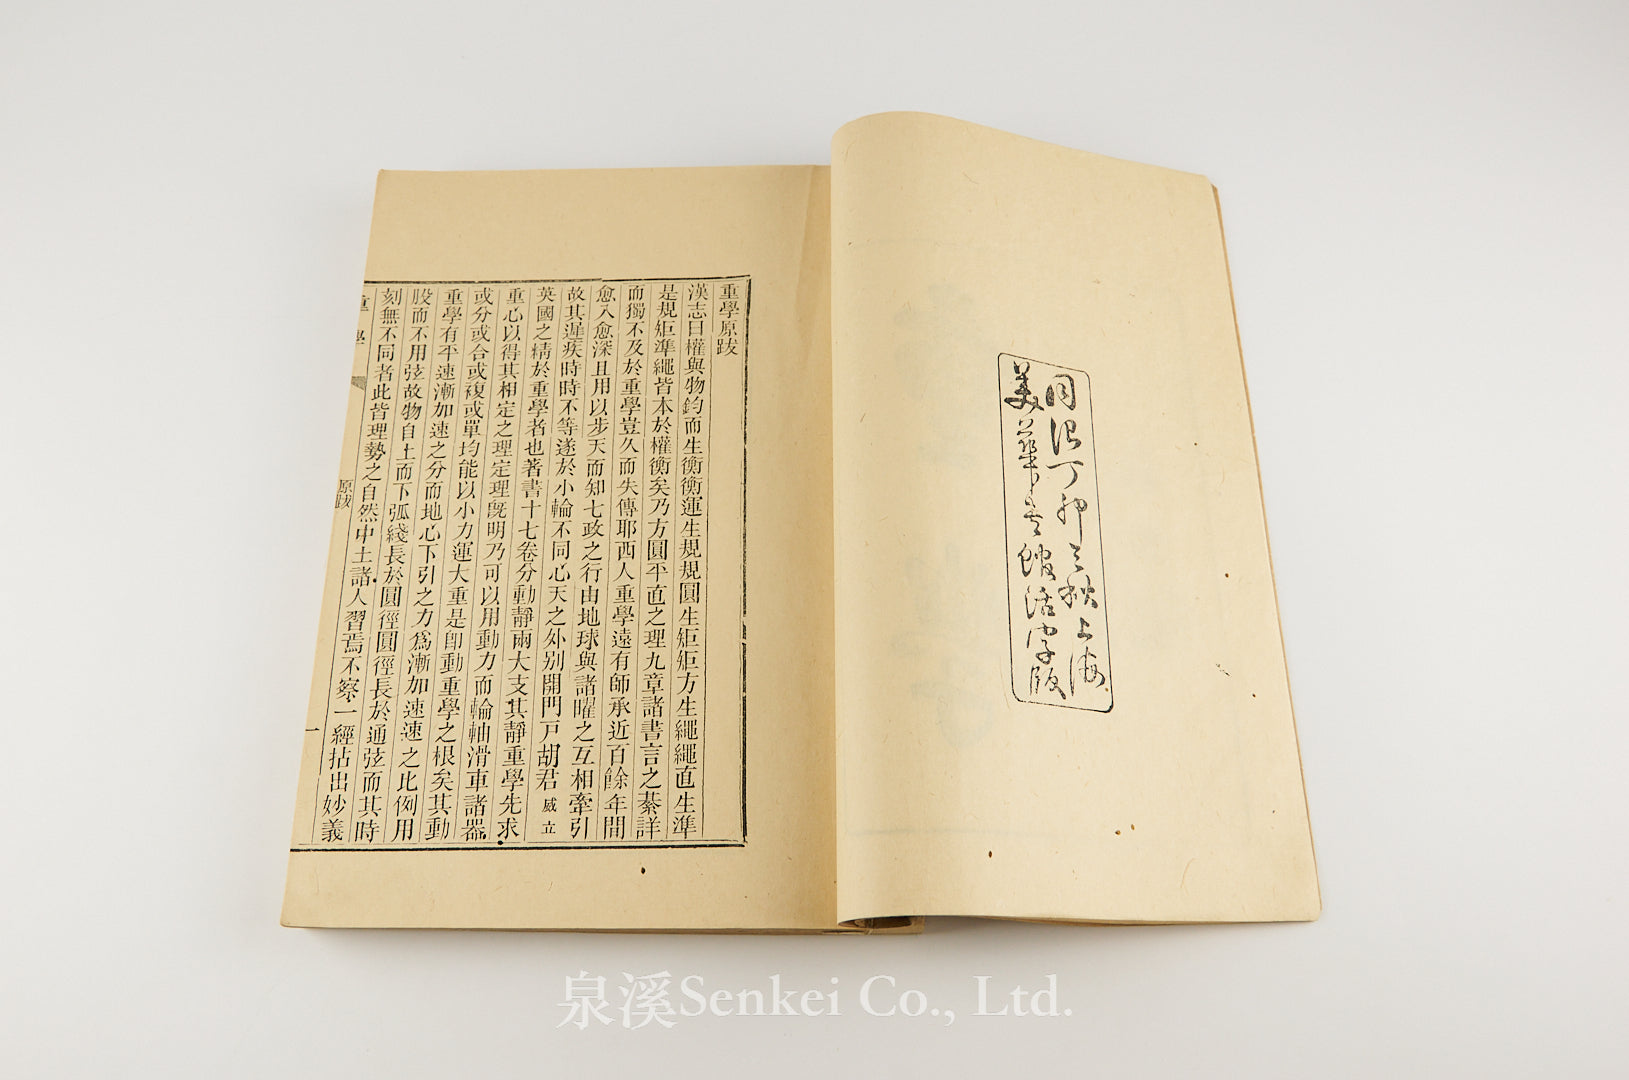 同治丁卯之秋上海
美華書館活字版
重學原跋
漢志曰權與物鈞而生衡衡運生規規圓生矩矩方生繩繩直生準
是規矩準繩皆本於權衡矣乃方圓平直之理九章諸書言之綦詳
而獨不及於重學豈久而失傳耶西人重學遠有師承近百餘年間
愈入愈深且用以步天而知七政之行由地球與諸曜之互相牽引
故其遲疾時時不等遂於小輪不同心天之外別開門戸胡君威立
英國之精於重學者也著書十七卷分動靜兩大支其靜重學先求
重心以得其相定之理定理旣明乃可以用動力而輪軸滑車諸器
或分或合或複或單均能以小力運大重是卽動重學之根矣其動
重學有平速漸加速之分而地心下引之力爲漸加速速之比例用
股而不用弦故物自上而下弧綫長於圓徑圓徑長於通弦而其時
刻無不同者此皆理勢之自然中土諸人習焉不察一經拈出妙義
重學
原跋
一
泉溪Senkei Co., Ltd.